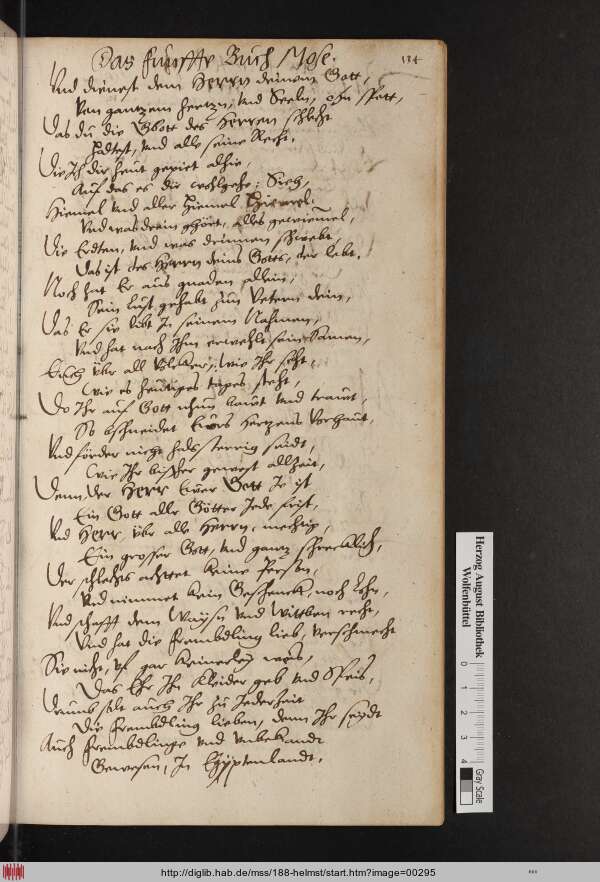 Das fünffte Buch Mose.
134
Vnd dienest dem Herrn deinem Gott,
Von gantzem hertzn, vnd Seeln, ohn spott,
Das du die Gbott des Herren schlecht
Haltest, vnd alle seine Recht,
Die Ich dir heut gepiet alhie,
Auf das es dir wohlgehe: Sieh,
Himel vnd aller Himel Himel
Vnd was drein ghört, alles gewimel,
Die Erdten, vnd was drinnen schwebt
Das ist des Herrn deins Gotts, der lebt.
Noch hat Er aus gnaden allein,
Sein lust gehabt zun Vetern dein,
Das Er sie libt In seinem Nahmen,
Vnd hat nach Ihn erwehlt sein Samen,
Euch vbr all Völker, wie Ihr seht,
Wie es heutiges tages steht,
Do Ihr auf Gott nhun baut vnd traut,
So bschneidet Ewrs Hertzens Vorhaut,
Vnd förder nicht halsterrig seidt,
Wie Ihr bißher gewest allzeit,
Denn, der Herr Ewer Gott Je ist
Ein Gott alle Götter Jede frist,
Vnd Herr vbr alle Herrn, mechtig,
Ein grosser Gott, vnd gantz schrecklich,
Der schlechts achtet keine Person,
Vnd nimmet kein Geschenck, noch Lohn,
Vnd schafft dem Waysn vnd Wittben recht,
Vnd hat die frembdling lieb, verschmecht
Sie nicht, vf gar keinerley weis,
Das Ehr Ihn Kleider geb vnd Speis,
Drumb solt auch Ihr zu Jederzeit
Die Frembdling lieben, denn Ihr seydt
Auch frembdlinge vnd vnbekandt
Gewesen, In Egÿptenlandt,
Herzog August Bibliothek
Wolfenbüttel
0 1 2 3 4
Gray Scale
http://diglib.hab.de/mss/188-helmst/start.htm?image=00295